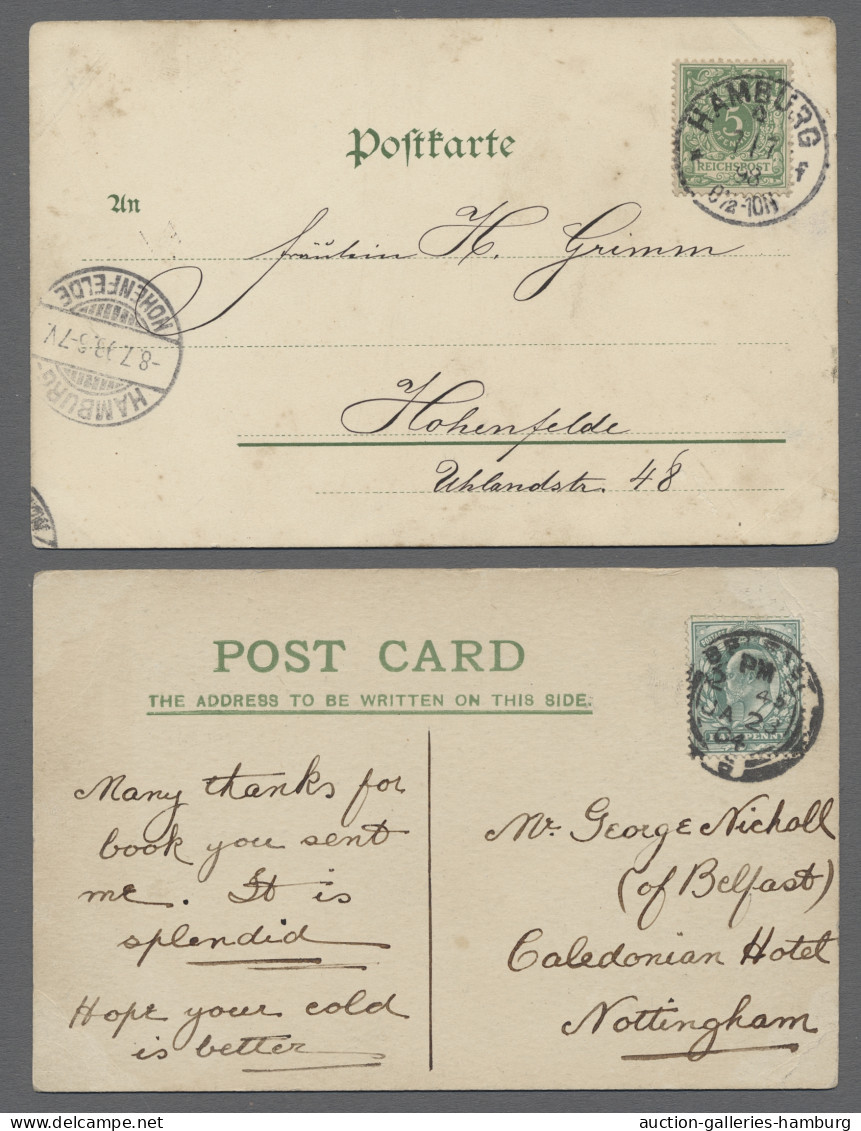 Postkarte
An
HAMBURG
5
REICHSPOST
7/7
98
f
Fräulein H. Grimm
HAMBURG-
HOHENFELDE
-8.7.98.6-7V.
Hohenfelde
Uhlandstr. 48
POST CARD
THE ADDRESS TO BE WRITTEN ON THIS SIDE.
PM
45
JA 23
Many thanks for
book you sent
me. It is
splendid
Hope your cold
is better
Mr. George Nicholl
(of Belfast)
Caledonian Hotel
Nottingham
auction-galleries-hamburg